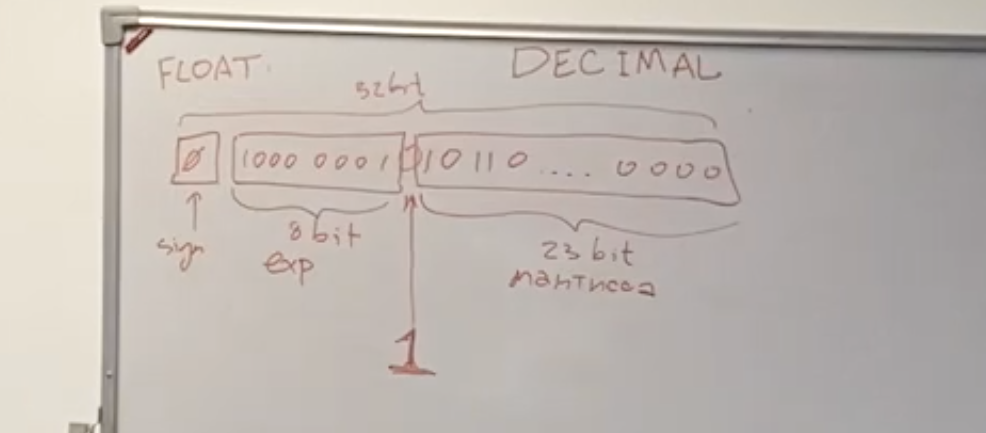 FLOAT.
DECIMAL
32bit
0 1000 0001 1 10110.... 0000
sign
8 bit
exp
23 bit
мантисса
1